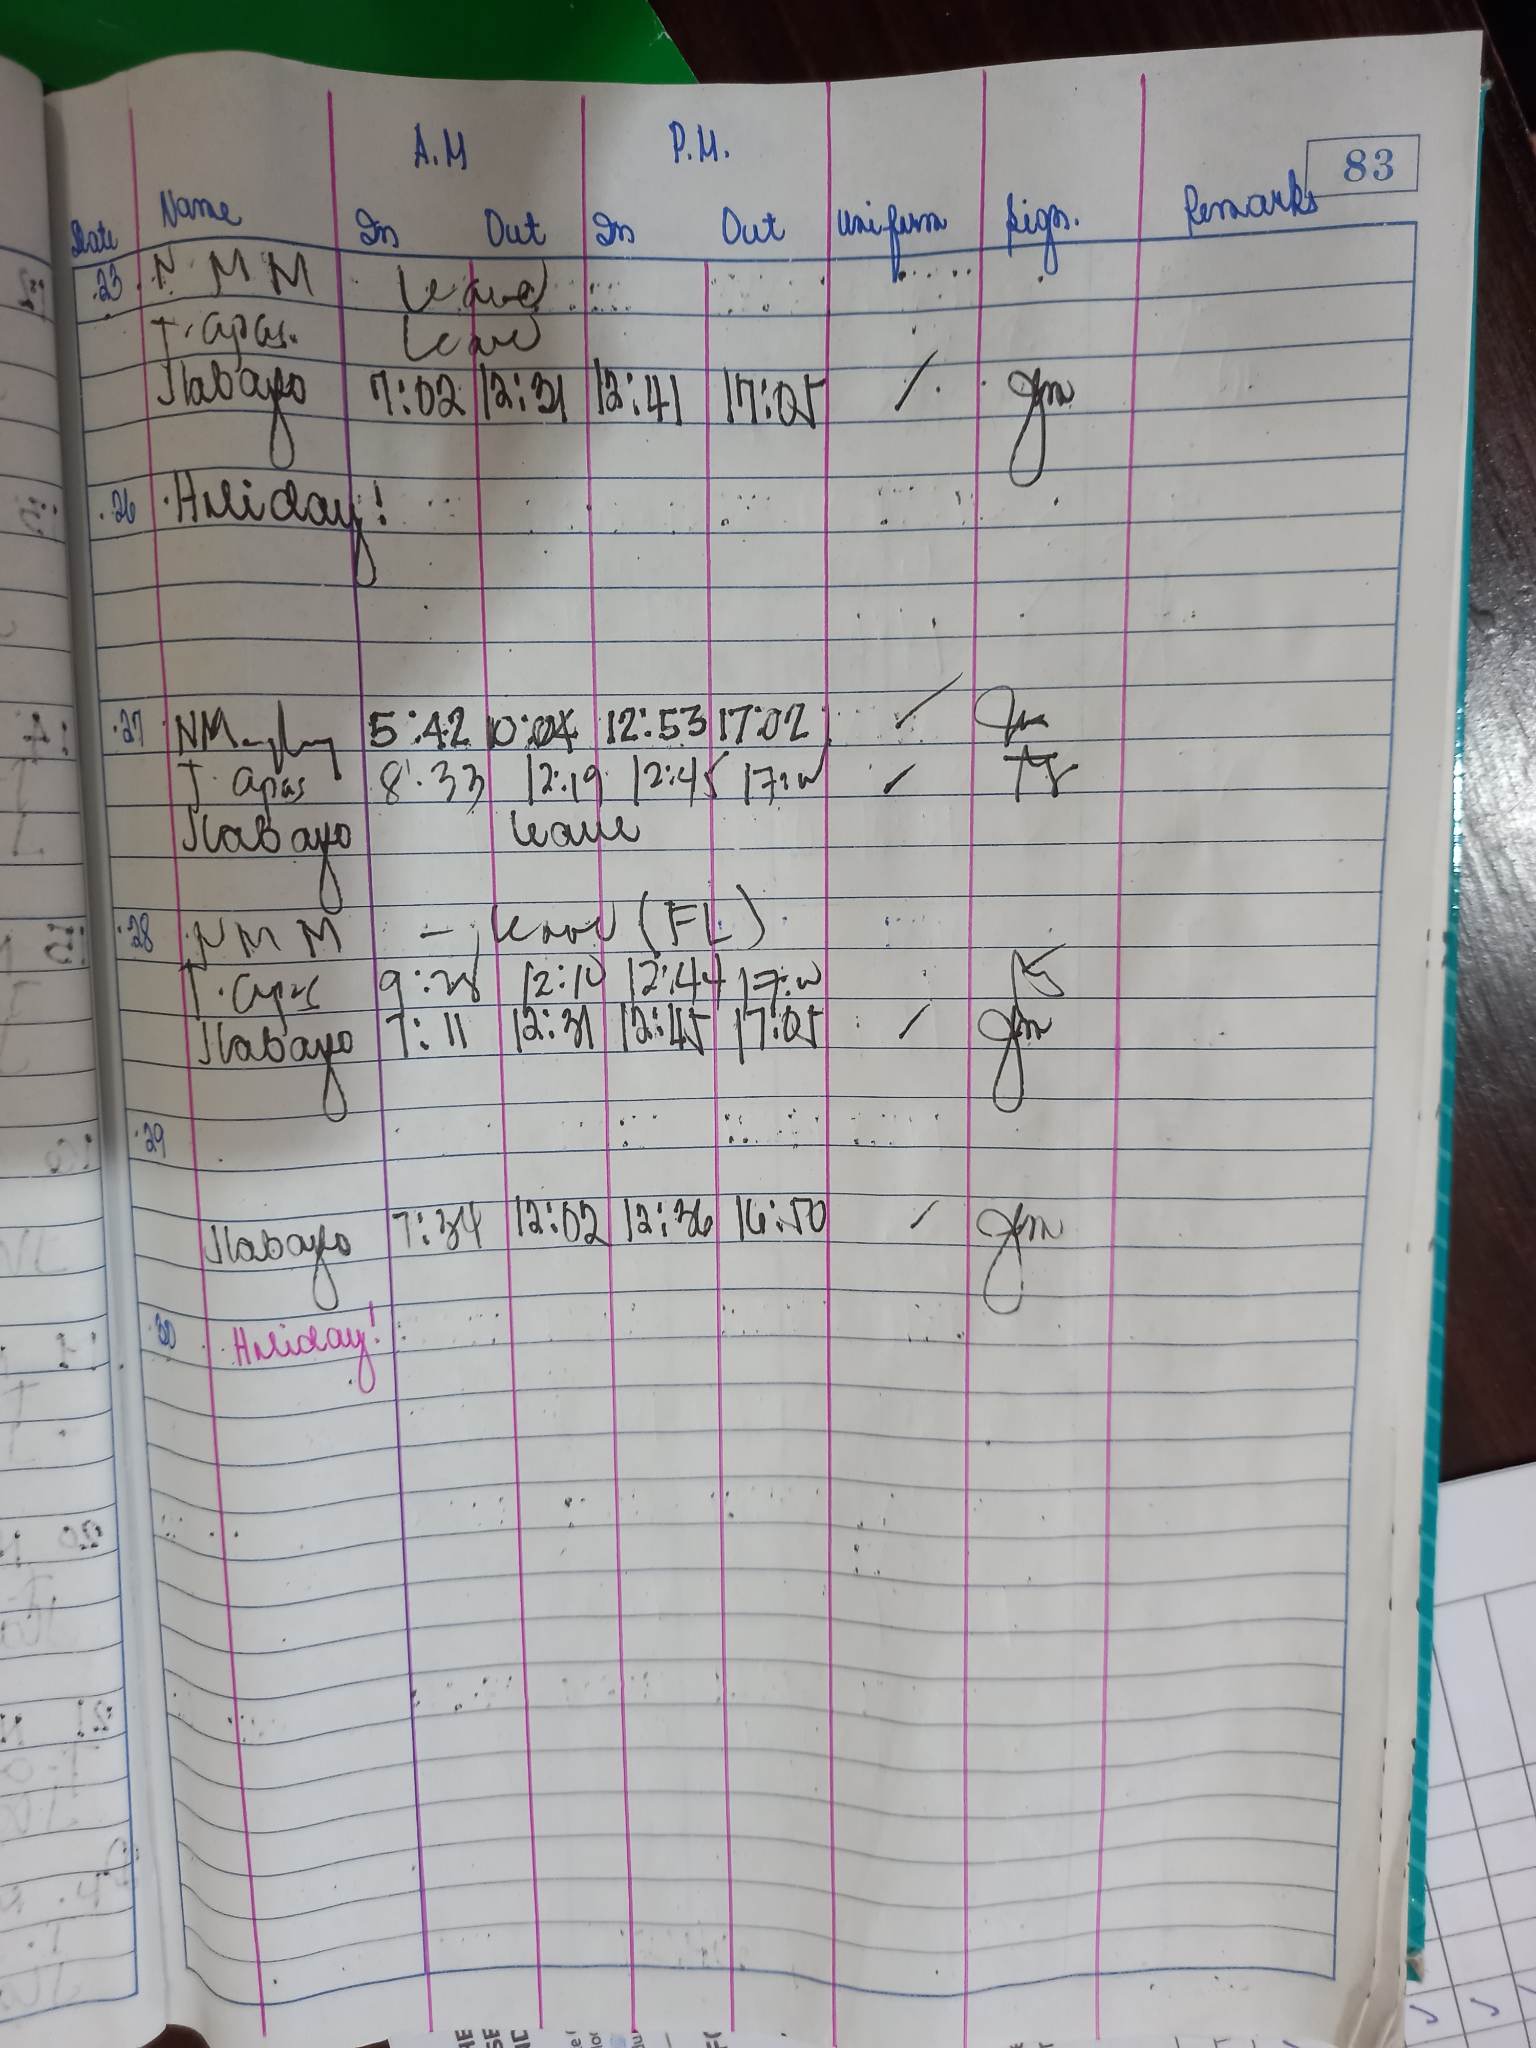 83
A.M P.M.
Date Name In Out In Out Uniform Sign. Remarks
23 N M M Leave
T. apas. Leave
Jlabayo 7:02 12:31 12:41 17:05
26 Holiday!
27 5:42 10:04 12:53 17:02
T. apas 8:33 12:19 12:45 17:
Jlabayo leave
28 N M M - leave (FL)
T. apas 9: 12: 12:44 17:
Jlabayo 7:11 12:31 12:45 17:05
29
Jlabayo 7:34 12:02 12:36 16:50
30 Holiday!